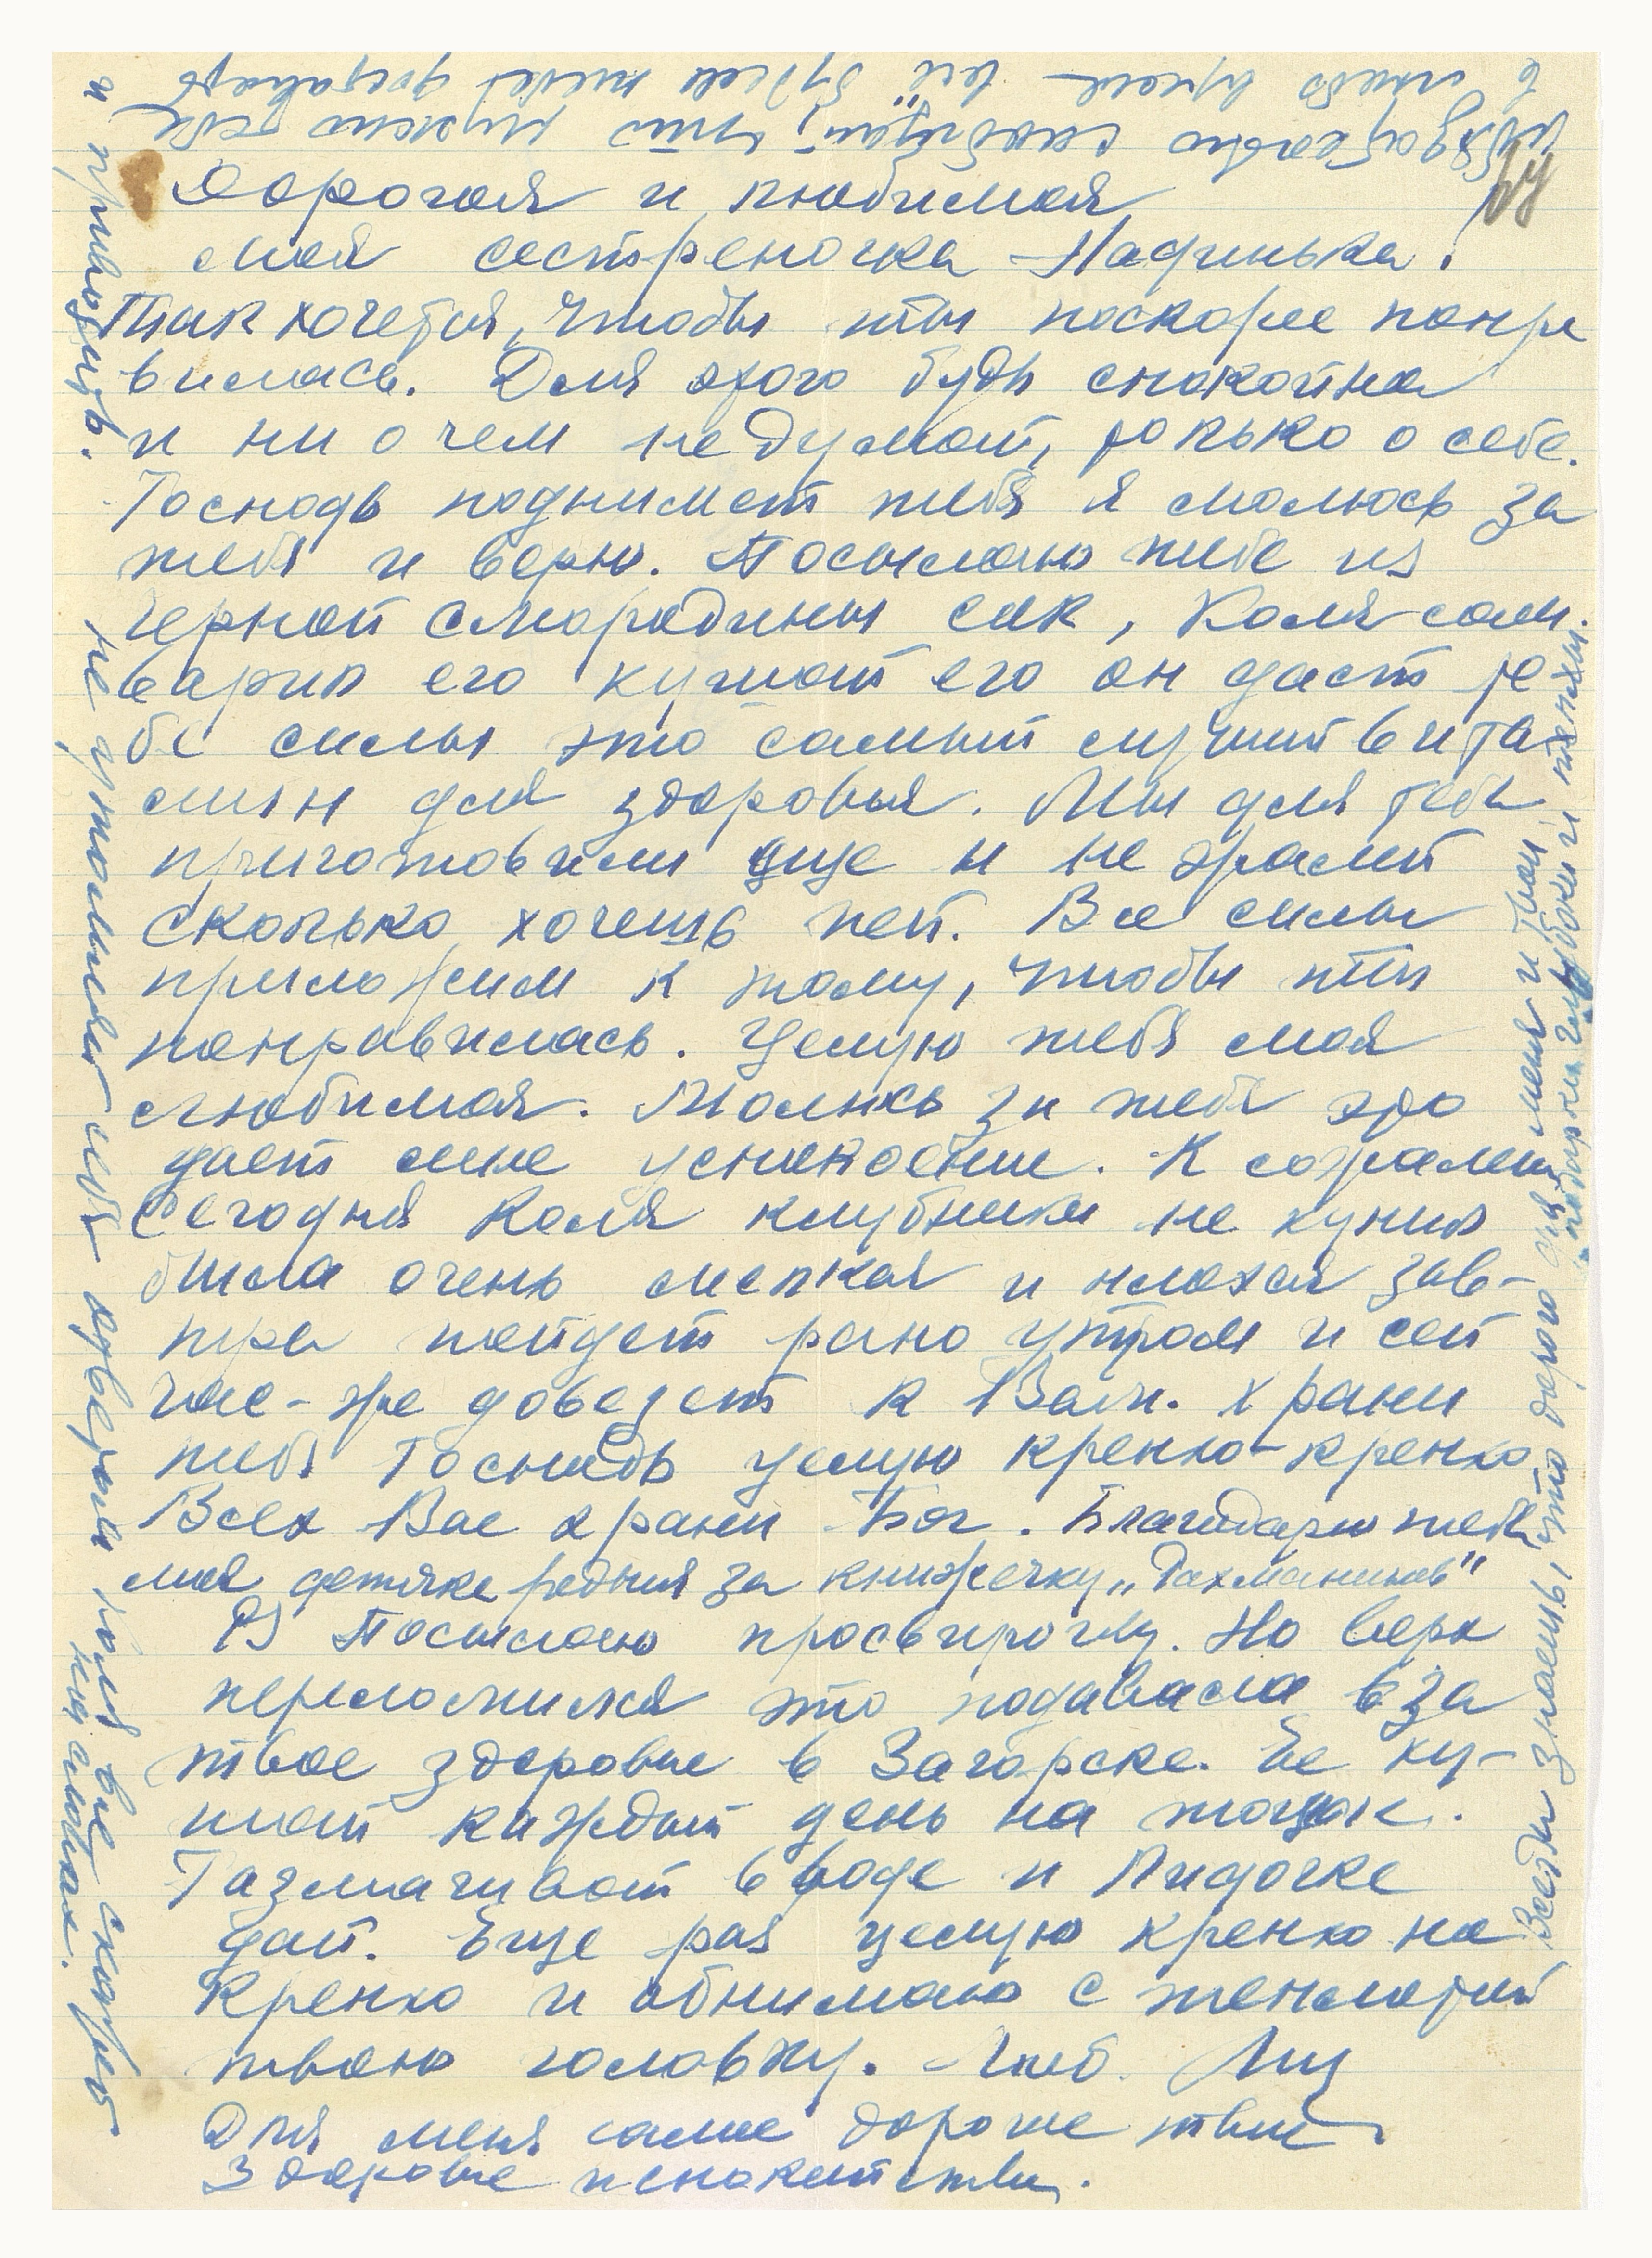 Дорогая и любимая
моя сестреночка Надинька!
Так хочется, чтобы ты поскорее попра
вилась. Для этого будь спокойна
и ни о чем не думай, только о себе.
Господь поднимет тебя я молюсь за
тебя и верю. Посылаю тебе из
черной смородины сок, Коля сам
варил его кушай его он даст те-
бе силы это самый лучший вита
мин для здоровья. Мы для тебя
приготовили еще и не жалей
сколько хочешь пей. Все силы
приложим к тому, чтобы ты
поправилась. Целую тебя моя
любимая. Молюсь за тебя это
дает мне успокоение. К сожален
сегодня Коля клубники не купил
была очень мелкая и плохая зав-
тра пойдет рано утром и сей
час-же довезет к Вам. Храни
тебя Господь целую крепко-крепко
Всех Вас храни Бог. Благодарю тебя
моя деточка родная за книжечку „Рахманинов"
PS Посылаю просвирочку. Но верх
переломился это подавала за
твое здоровье в Загорске. Ее ку-
шай каждый день на тощак.
Размачивай в воде и Лидочке
дай. Еще раз целую крепко на
крепко и обнимаю с теплотой
твою головку. Люб.
Для меня самое дорогое твое
здоровье и спокойствие.
Всегда знаешь, что дорого для меня и твои
и не утомляй себя
на словах.
и привозить.
обязательно сообщай, что нужно тебе
в любое время все будем тебе доставать